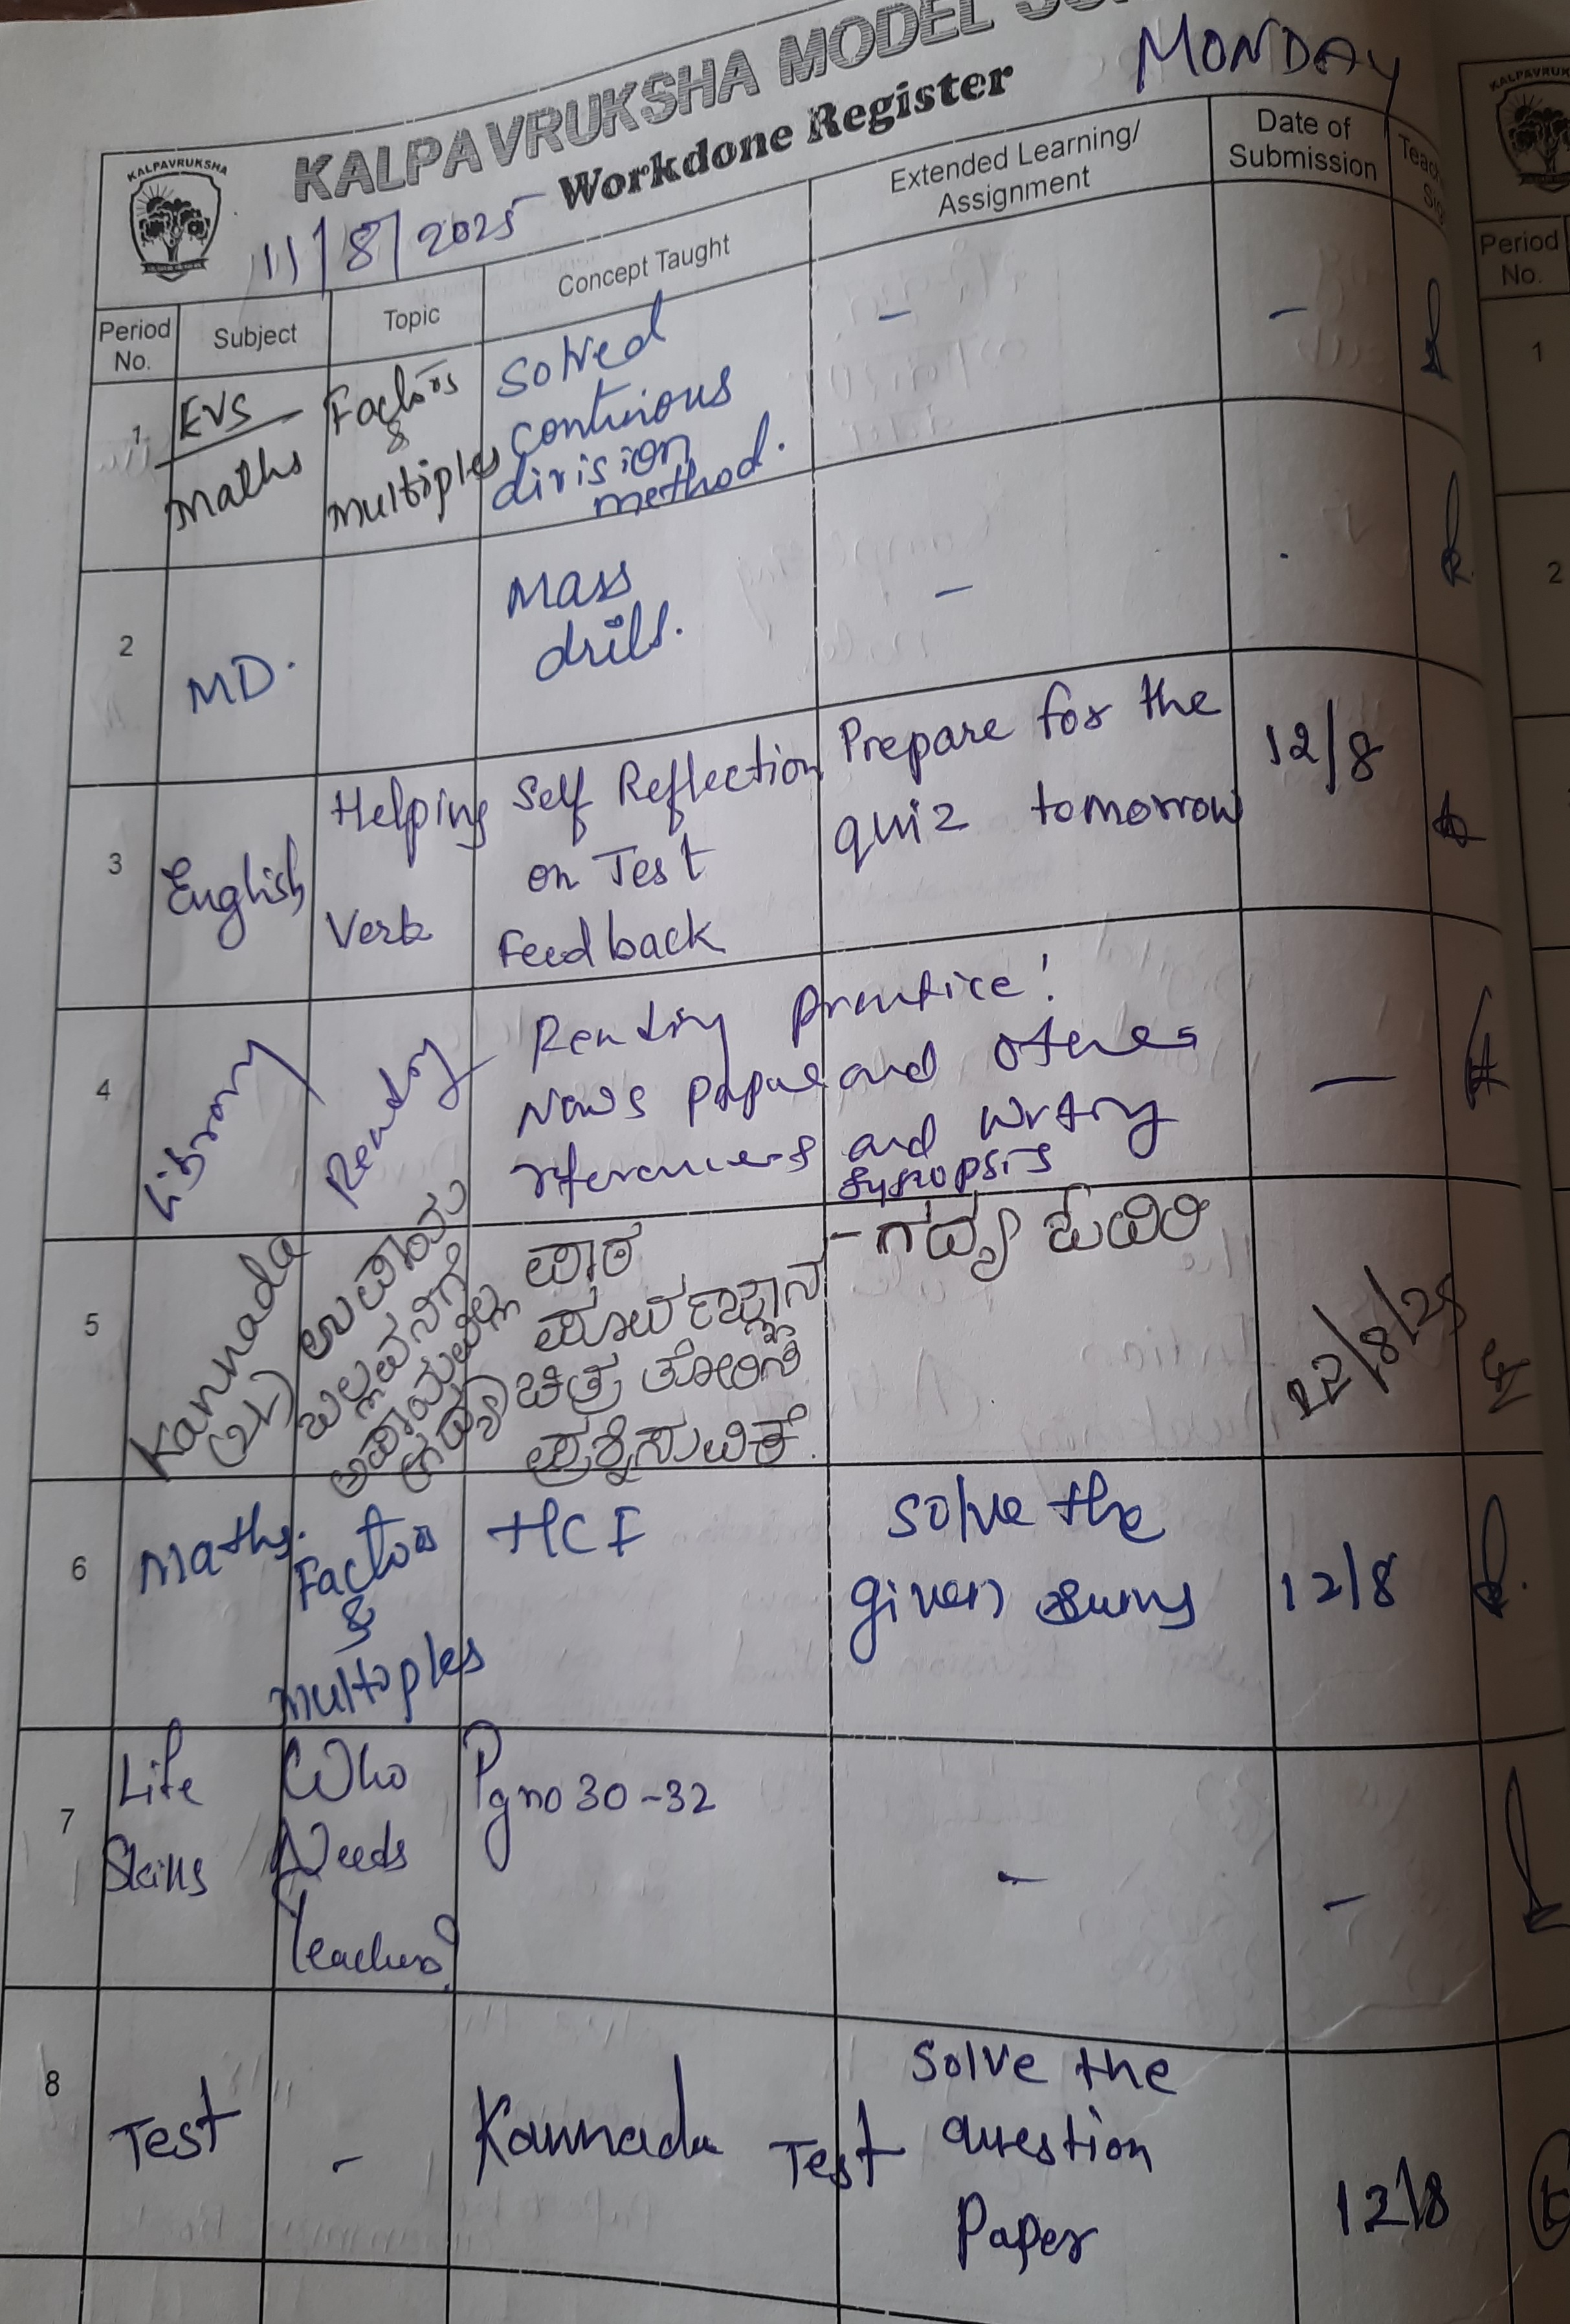 MONDAY
KALPAVRUKSHA MODEL
Workdone Register
KALPAVRUKSHA
11/8/2025
Period No.
Subject
Topic
Concept Taught
Extended Learning/
Assignment
Date of
Submission
1
EVS
Maths
Factors
&
Multiples
Solved
continious
division
method.
-
-
2
MD.
Mass
drill.
-
3
English
Helping
Verb
Self Reflection
on Test
Feedback
Prepare for the
quiz tomorrow
12/8
4
Library
Reading
Reading practice!
News paper and others
references and writing
synopsis
-
5
Kannada
(2L)
ಪಾಠ
ಪೂರ್ವಜ್ಞಾನ
ಚಿತ್ರ ತೋರಿಸಿ
ಪ್ರಶ್ನಿಸುವಿಕೆ.
- ಗದ್ಯ
6
Maths.
Factors
&
Multiples
HCF
Solve the
given sums
12/8
7
Life
Skills
Who
Needs
Teachers?
Pg no 30-32
-
-
8
Test
-
Kannada Test
Solve the
question
Paper
12/8
Period
No.
1
2